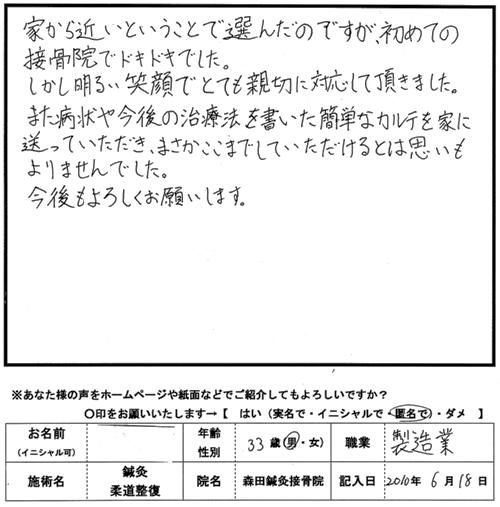 家から近いということで選んだのですが、初めての
接骨院でドキドキでした。
しかし明るい笑顔でとても親切に対応して頂きました。
また病状や今後の治療法を書いた簡単なカルテを家に
送っていただき、まさかここまでしていただけるとは思いも
よりませんでした。
今後もよろしくお願いします。
※あなた様の声をホームページや紙面などでご紹介してもよろしいですか？
〇印をお願いいたします→【 はい（実名で・イニシャルで・匿名で）・ダメ 】
お名前
（イニシャル可）
年齢
性別
33歳（男・女）
職業
製造業
施術名
鍼灸
柔道整復
院名
森田鍼灸接骨院
記入日
2010年 6月 18日